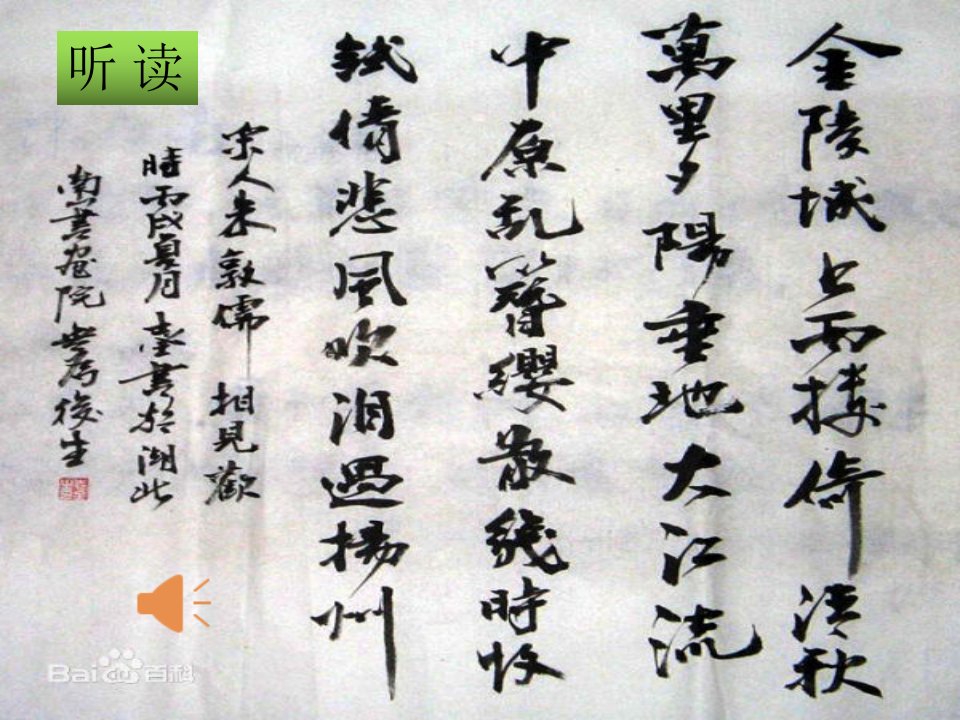 听读
金陵城上西楼倚清秋
萬里夕陽垂地大江流
中原乱簪纓散幾時收
試倩悲風吹泪過揚州
宋人朱敦儒 相見歡
時丙戌夏月 書於湖北
南書畫院 後生
Bai百科